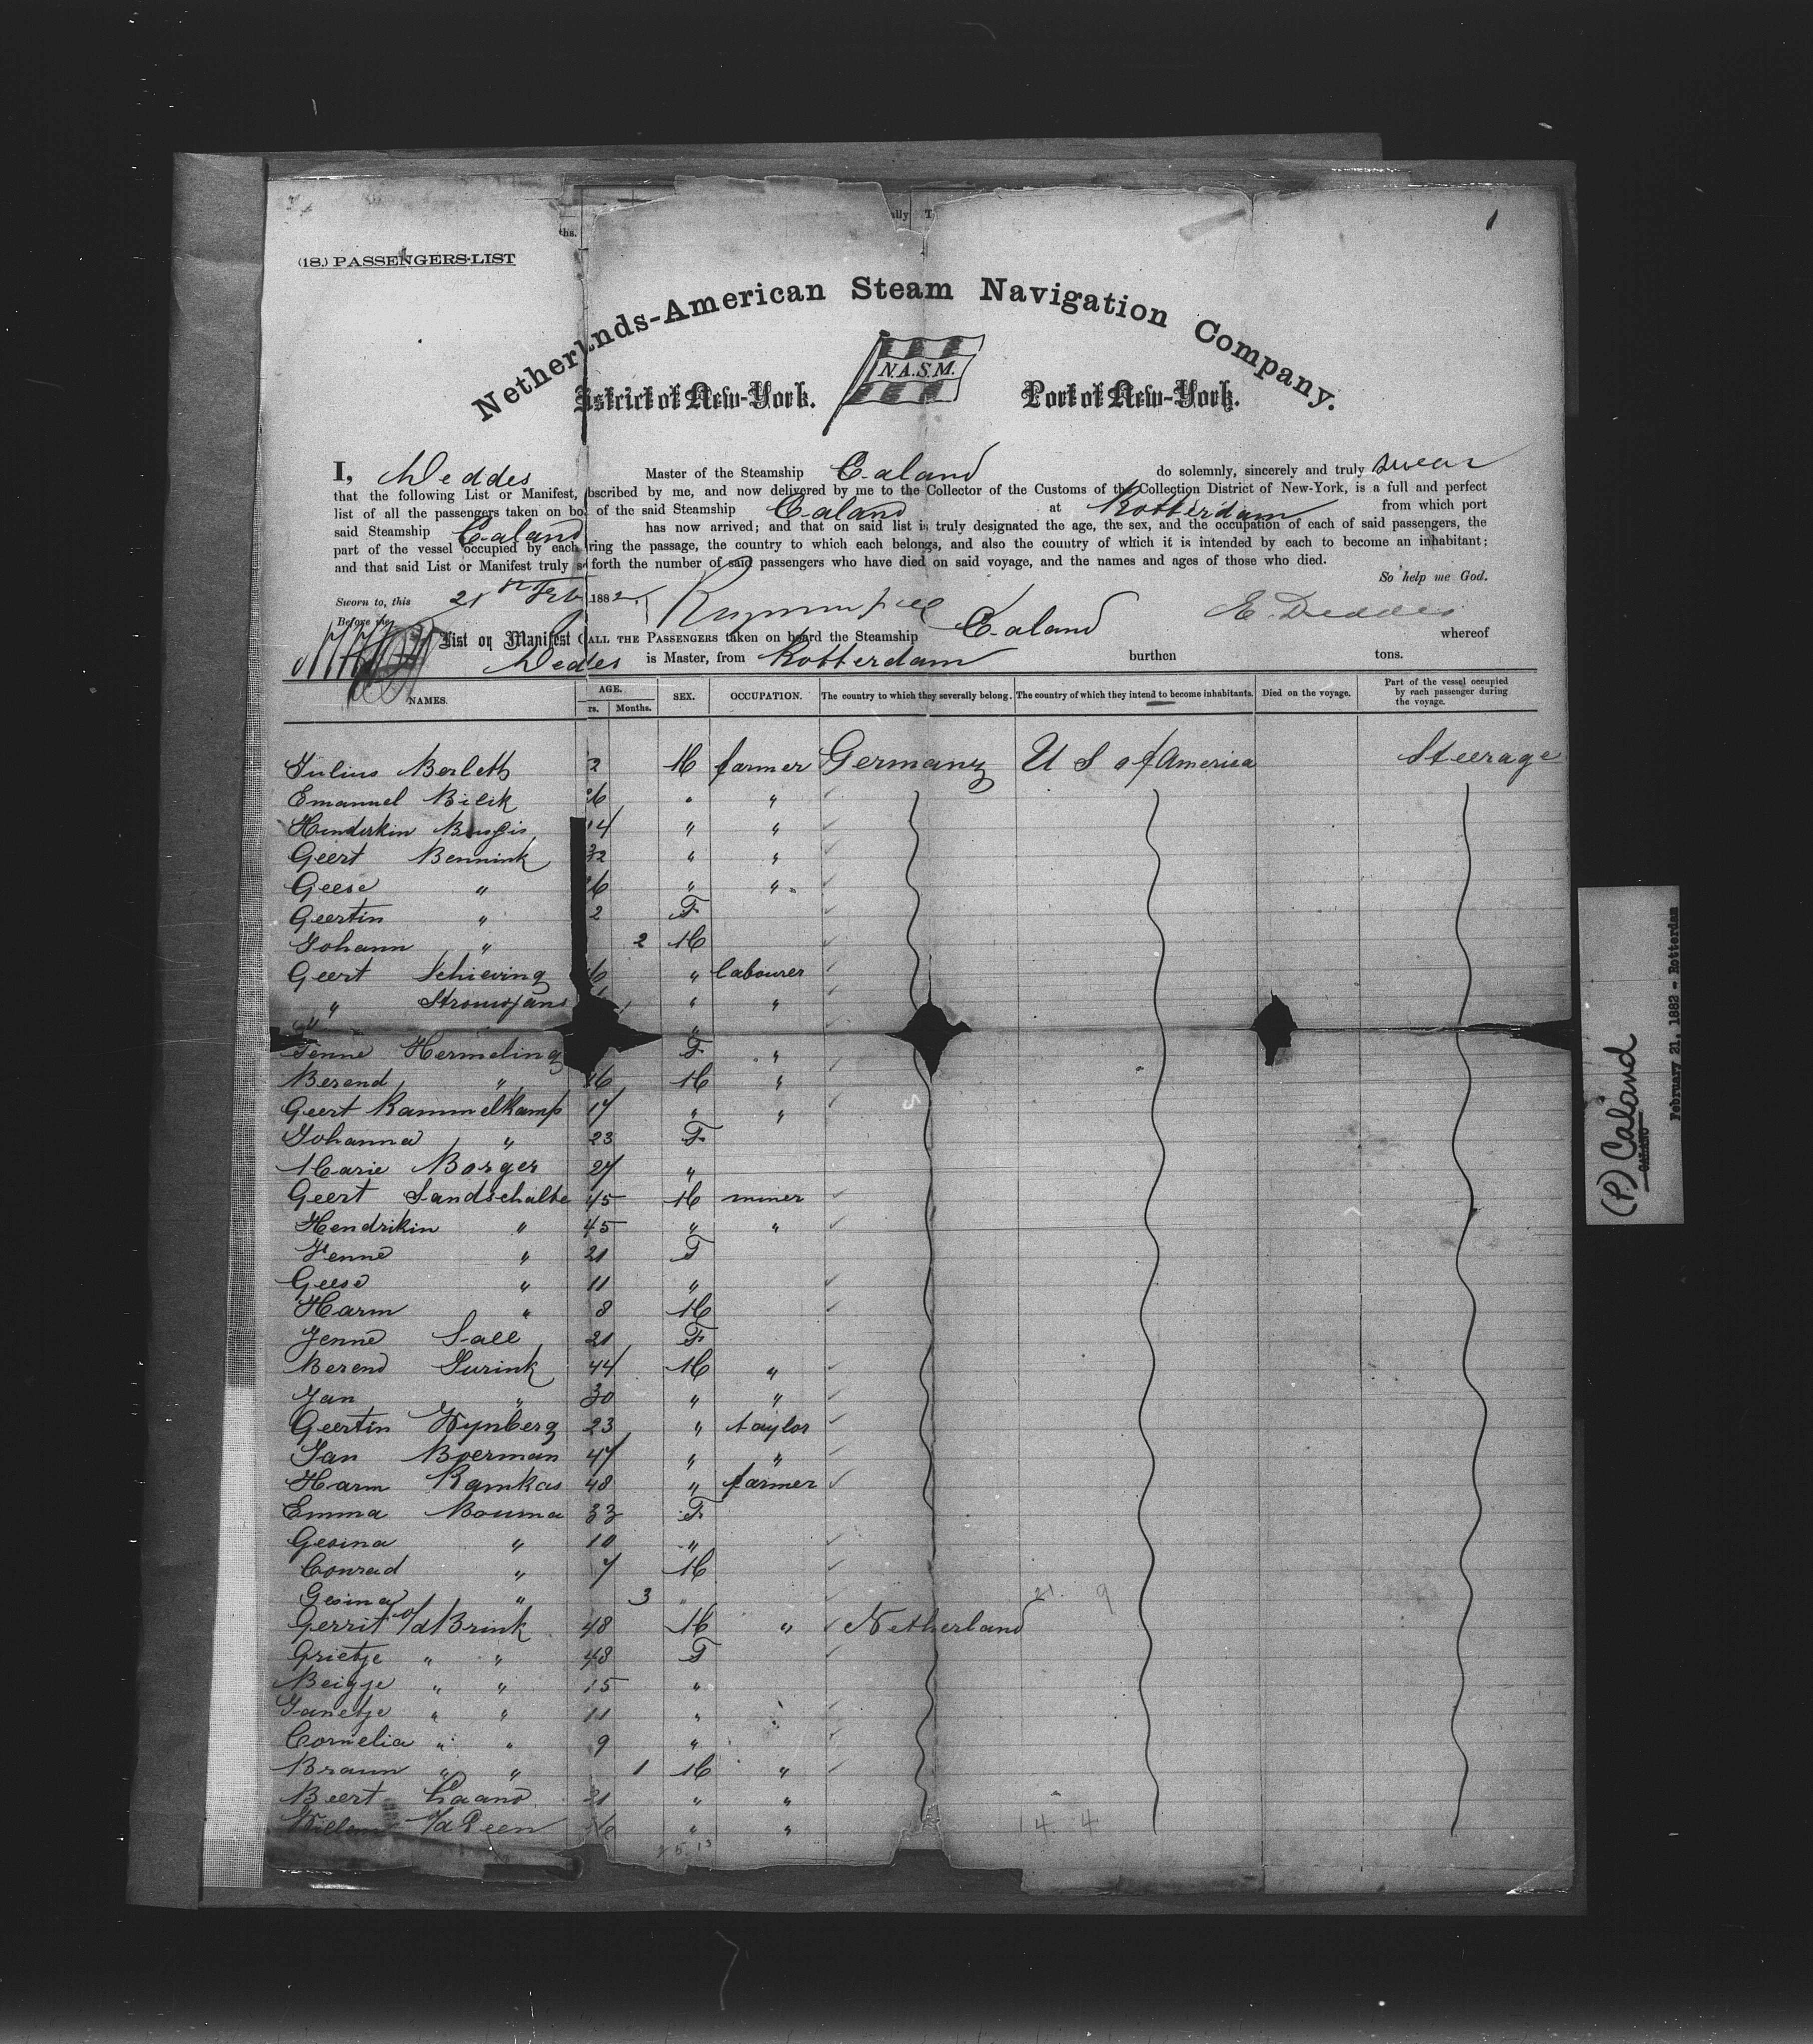 1
(18.) PASSENGERS-LIST
Netherlnds-American Steam Navigation Company.
N.A.S.M.
District of New-York. Port of New-York.
I, Deddes Master of the Steamship Caland do solemnly, sincerely and truly swear
that the following List or Manifest, bscribed by me, and now delivered by me to the Collector of the Customs of the Collection District of New-York, is a full and perfect
list of all the passengers taken on bo of the said Steamship Caland at Rotterdam from which port
said Steamship Caland has now arrived; and that on said list is truly designated the age, the sex, and the occupation of each of said passengers, the
part of the vessel occupied by each ring the passage, the country to which each belongs, and also the country of which it is intended by each to become an inhabitant;
and that said List or Manifest truly s forth the number of said passengers who have died on said voyage, and the names and ages of those who died.
So help me God.
Sworn to, this 21 Feb 1882, E. Deddes
Before me
List or Manifest ALL THE PASSENGERS taken on board the Steamship Caland whereof
Deddes is Master, from Rotterdam burthen tons.
NAMES. AGE. rs. Months. SEX. OCCUPATION. The country to which they severally belong. The country of which they intend to become inhabitants. Died on the voyage. Part of the vessel occupied by each passenger during the voyage.
Julius Berleth 2 M farmer Germany U S of America Steerage
Emanuel Bilik 26 " "
Hinderkin 14 " "
Geert Bennink 32 " "
Geese " 6 " "
Geertin " 2 F
Johann " 2 M
Geert Schieving 6 " labourer
" " "
"
Fenne Hermeling F "
Berend " 16 M "
Geert Rammelkamp 17 " "
Johanna " 23 F
Marie Borger 27 "
Geert Sandschalte 45 M miner
Hendrikin " 45 " "
Fenne " 21 F
Geese " 11 "
Harm " 8 M
Jenne Sall 21 F
Berend Surink 44 M "
Jan " 30 " "
Geertin Wynberg 23 " taylor
Jan Boerman 47 " "
Harm Ramkas 48 " farmer
Emma Bouma 33 F
Gesina " 10 "
Conrad " 7 M
Gesina " 3 "
Gerrit v/d Brink 48 M " Netherland
Grietje " " 48 F
Beigje " " 15 "
Janetje " " 11 "
Cornelia " " 9 "
Braun " " 1 M "
Beert 21 " "
Willem v/d Veen 16 " "
(P.) Caland
CALAND
February 21, 1882 - Rotterdam